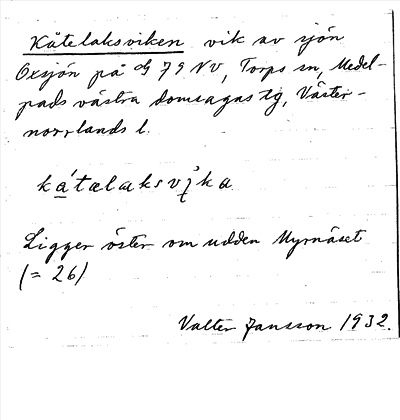 Kåtelaksviken vik av sjön
Oxsjön på G 79 NV, Torps sn, Medel-
pads västra domsagas tg, Väster-
norrlands l.
kátelaksvíka
Ligger öster om udden Myrnäset
(= 26)
Valter Jansson 1932.